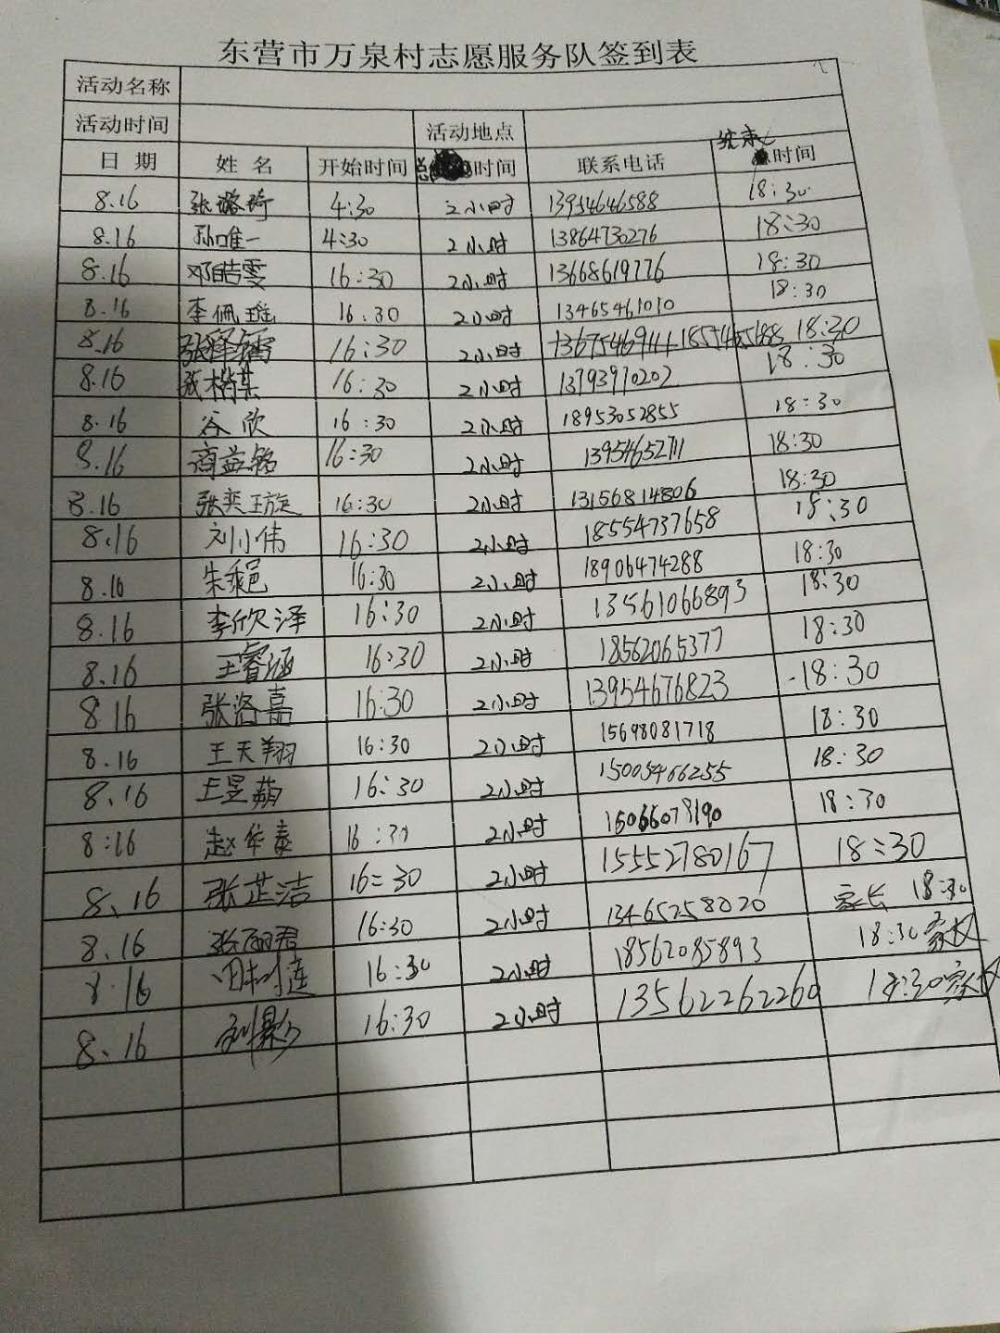 东营市万泉村志愿服务队签到表
活动名称
活动时间 活动地点
日期 姓名 开始时间 总时间 联系电话 结束时间
8.16 张潞琦 4:30 2小时 13954646588 18:30
8.16 孙唯一 4:30 2小时 13864730276 18:30
8.16 邓皓雯 16:30 2小时 13668619776 18:30
8.16 李佩瑶 16:30 2小时 13465461010 18:30
8.16 16:30 2小时 18:30
8.16 16:30 2小时 13793970202 18:30
8.16 谷欣 16:30 2小时 18953052855 18:30
8.16 商益铭 16:30 2小时 13954652711 18:30
8.16 张奕璇 16:30 2小时 13156814806 18:30
8.16 刘小伟 16:30 2小时 18554737658 18:30
8.16 16:30 2小时 18906474288 18:30
8.16 李欣泽 16:30 2小时 13561066893 18:30
8.16 王睿涵 16:30 2小时 18562065377 18:30
8.16 张洛嘉 16:30 2小时 13954676823 18:30
8.16 王天翔 16:30 2小时 15698081718 18:30
8.16 王昱蘅 16:30 2小时 15005466255 18:30
8:16 赵华泰 16:30 2小时 15066078190 18:30
8.16 张芷洁 16:30 2小时 15552780167 18:30
8.16 16:30 2小时 13465258020 家长 18:30
8.16 16:30 2小时 18562085893 18:30 家长
8.16 16:30 2小时 13562262260 18:30 家长